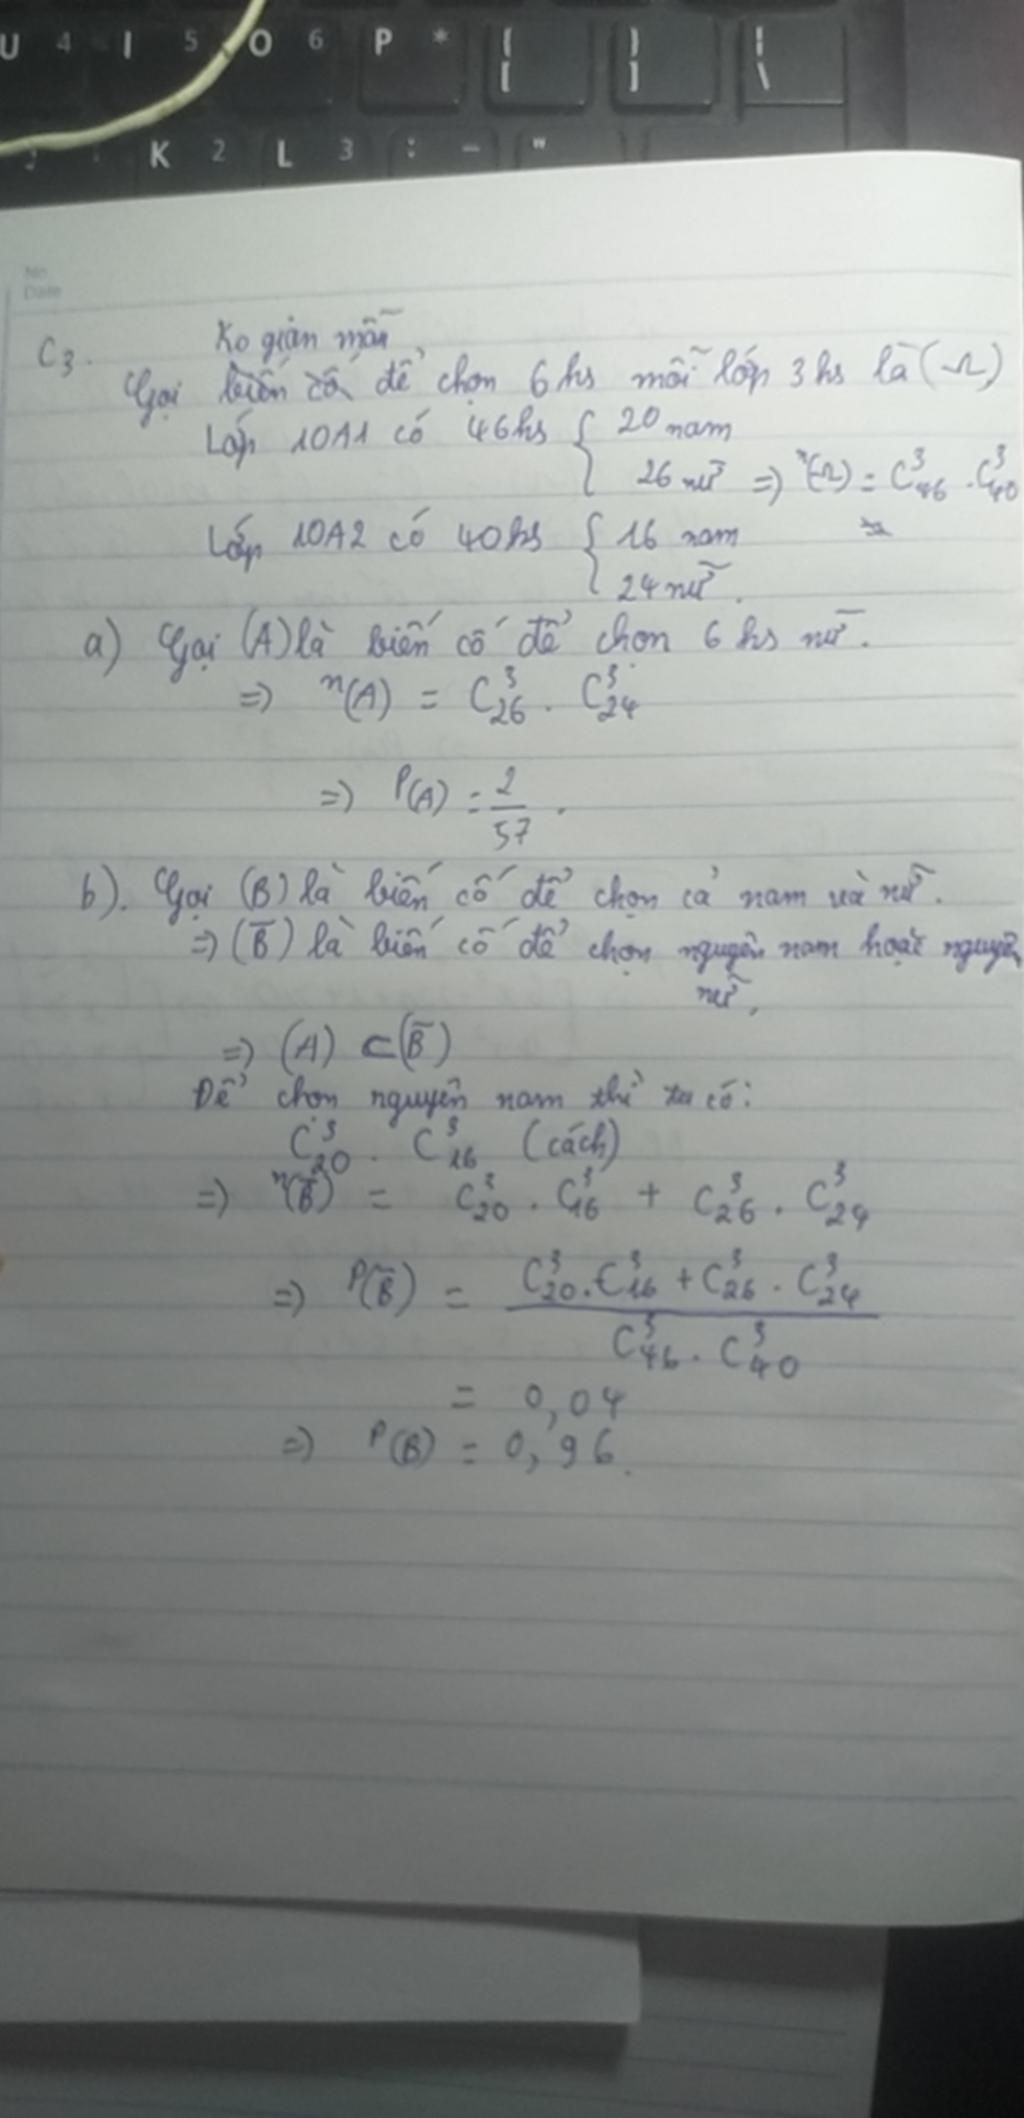 U 4 I 5 O 6 P * { [ } ] | \
J K 2 L 3 : - "
No
Date
C3. Ko gian mẫu
Gọi biến cố để chọn 6 hs mỗi lớp 3 hs là (Ω)
Lớp 10A1 có 46hs { 20 nam
26 nữ => n(Ω) = C³₄₆ . C³₄₀
Lớp 10A2 có 40hs { 16 nam
24 nữ.
a) Gọi (A) là biến cố để chọn 6 hs nữ.
=> n(A) = C³₂₆ . C³₂₄
=> P(A) = 2/57 .
b). Gọi (B) là biến cố để chọn cả nam và nữ.
=> (B̄) là biến cố để chọn nguyên nam hoặc nguyên
nữ,
=> (A) ⊂ (B̄)
Để chọn nguyên nam thì ta có:
C³₂₀ . C³₁₆ (cách)
=> n(B̄) = C³₂₀ . C³₁₆ + C³₂₆ . C³₂₄
=> P(B̄) = (C³₂₀ . C³₁₆ + C³₂₆ . C³₂₄) / (C³₄₆ . C³₄₀)
= 0,04
=> P(B) = 0,96.